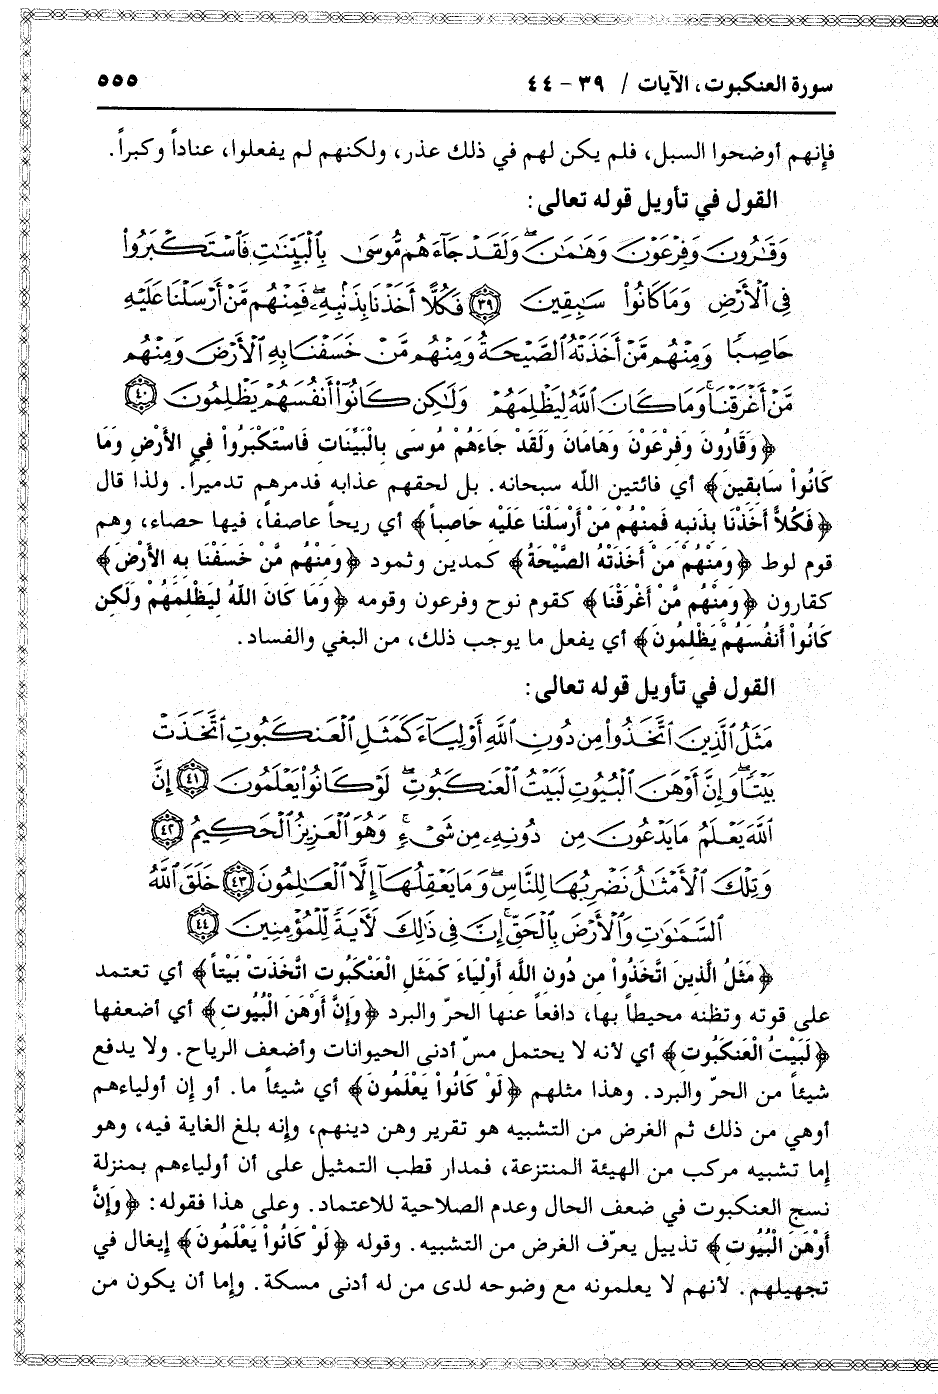 سورة العنكبوت، الآيات / ٣٩ - ٤٤ ٥٥٥
فإنهم أوضحوا السبل، فلم يكن لهم في ذلك عذر، ولكنهم لم يفعلوا، عناداً وكبراً.
القول في تأويل قوله تعالى:
وَقَٰرُونَ وَفِرْعَوْنَ وَهَٰمَٰنَ ۖ وَلَقَدْ جَآءَهُم مُّوسَىٰ بِٱلْبَيِّنَٰتِ فَٱسْتَكْبَرُوا۟
فِى ٱلْأَرْضِ وَمَا كَانُوا۟ سَٰبِقِينَ ﴿٣٩﴾ فَكُلًّا أَخَذْنَا بِذَنۢبِهِۦ ۖ فَمِنْهُم مَّنْ أَرْسَلْنَا عَلَيْهِ
حَاصِبًا وَمِنْهُم مَّنْ أَخَذَتْهُ ٱلصَّيْحَةُ وَمِنْهُم مَّنْ خَسَفْنَا بِهِ ٱلْأَرْضَ وَمِنْهُم
مَّنْ أَغْرَقْنَا ۚ وَمَا كَانَ ٱللَّهُ لِيَظْلِمَهُمْ وَلَٰكِن كَانُوٓا۟ أَنفُسَهُمْ يَظْلِمُونَ ﴿٤٠﴾
﴿وَقَارُونَ وَفِرْعَوْنَ وَهَامَانَ وَلَقَدْ جَاءَهُمْ مُوسَى بِالْبَيِّنَاتِ فَاسْتَكْبَرُواْ فِي الأَرْضِ وَمَا
كَانُواْ سَابِقِينَ﴾ أي فائتين الله سبحانه. بل لحقهم عذابه فدمرهم تدميراً. ولذا قال
﴿فَكُلاًّ أَخَذْنَا بِذَنبِهِ فَمِنْهُمْ مَنْ أَرْسَلْنَا عَلَيْهِ حَاصِباً﴾ أي ريحاً عاصفاً، فيها حصاء، وهم
قوم لوط ﴿وَمِنْهُمْ مَنْ أَخَذَتْهُ الصَّيْحَةُ﴾ كمدين وثمود ﴿وَمِنْهُم مَّنْ خَسَفْنَا بِهِ الأَرْضَ﴾
كقارون ﴿وَمِنْهُم مَّنْ أَغْرَقْنَا﴾ كقوم نوح وفرعون وقومه ﴿وَمَا كَانَ اللَّهُ لِيَظْلِمَهُمْ وَلَكِن
كَانُواْ أَنفُسَهُمْ يَظْلِمُونَ﴾ أي يفعل ما يوجب ذلك، من البغي والفساد.
القول في تأويل قوله تعالى:
مَثَلُ ٱلَّذِينَ ٱتَّخَذُوا۟ مِن دُونِ ٱللَّهِ أَوْلِيَآءَ كَمَثَلِ ٱلْعَنكَبُوتِ ٱتَّخَذَتْ
بَيْتًا ۖ وَإِنَّ أَوْهَنَ ٱلْبُيُوتِ لَبَيْتُ ٱلْعَنكَبُوتِ ۖ لَوْ كَانُوا۟ يَعْلَمُونَ ﴿٤١﴾ إِنَّ
ٱللَّهَ يَعْلَمُ مَا يَدْعُونَ مِن دُونِهِۦ مِن شَىْءٍ ۚ وَهُوَ ٱلْعَزِيزُ ٱلْحَكِيمُ ﴿٤٢﴾
وَتِلْكَ ٱلْأَمْثَٰلُ نَضْرِبُهَا لِلنَّاسِ ۖ وَمَا يَعْقِلُهَآ إِلَّا ٱلْعَٰلِمُونَ ﴿٤٣﴾ خَلَقَ ٱللَّهُ
ٱلسَّمَٰوَٰتِ وَٱلْأَرْضَ بِٱلْحَقِّ ۚ إِنَّ فِى ذَٰلِكَ لَءَايَةً لِّلْمُؤْمِنِينَ ﴿٤٤﴾
﴿مَثَلُ الَّذِينَ اتَّخَذُواْ مِن دُونِ اللَّهِ أَوْلِيَاءَ كَمَثَلِ الْعَنْكَبُوتِ اتَّخَذَتْ بَيْتاً﴾ أي تعتمد
على قوته وتظنه محيطاً بها، دافعاً عنها الحرّ والبرد ﴿وَإِنَّ أَوْهَنَ الْبُيُوتِ﴾ أي أضعفها
﴿لَبَيْتُ الْعَنكَبُوتِ﴾ أي لأنه لا يحتمل مسّ أدنى الحيوانات وأضعف الرياح. ولا يدفع
شيئاً من الحرّ والبرد. وهذا مثلهم ﴿لَوْ كَانُواْ يَعْلَمُونَ﴾ أي شيئاً ما. أو إن أولياءهم
أوهي من ذلك ثم الغرض من التشبيه هو تقرير وهن دينهم، وإنه بلغ الغاية فيه، وهو
إما تشبيه مركب من الهيئة المنتزعة، فمدار قطب التمثيل على أن أولياءهم بمنزلة
نسج العنكبوت في ضعف الحال وعدم الصلاحية للاعتماد. وعلى هذا فقوله: ﴿وَإِنَّ
أَوْهَنَ الْبُيُوتِ﴾ تذييل يعرّف الغرض من التشبيه. وقوله ﴿لَوْ كَانُواْ يَعْلَمُونَ﴾ إيغال في
تجهيلهم. لأنهم لا يعلمونه مع وضوحه لدى من له أدنى مسكة. وإما أن يكون من